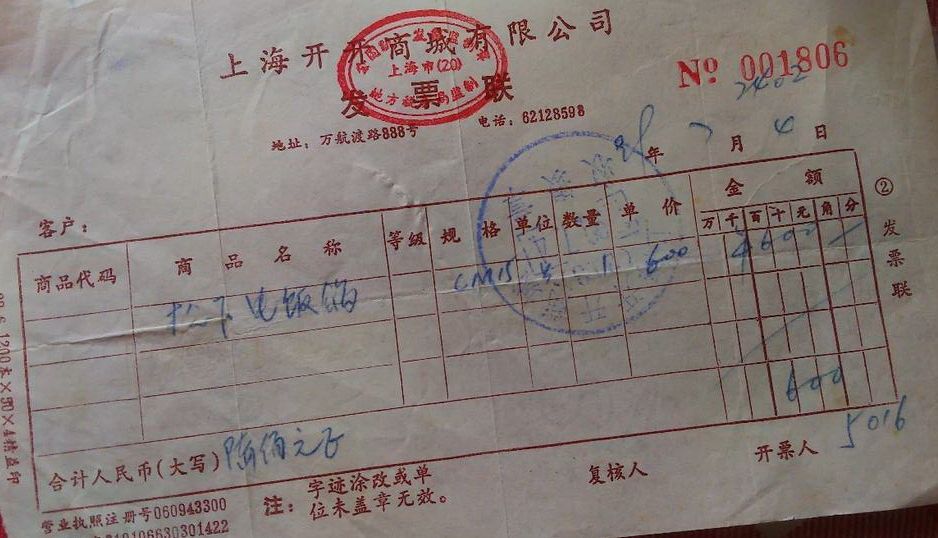 上海开开商城有限公司
上海市(20)
发票联
№ 001806
地址：万航渡路888号 电话：62128598
年 7 月 4 日
客户：
商品代码 商品名称 等级 规格 单位 数量 单价 金额
万 千 百 十 元 角 分
松下电饭锅 CM15 1 600 600
600
② 发票联
合计人民币(大写) 陆佰元正
复核人 开票人 5016
注：字迹涂改或单
位未盖章无效。
营业执照注册号060943300
310106630301422